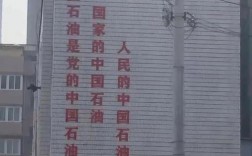 石油是党的中国石油
国家的中国石油
人民的中国石油